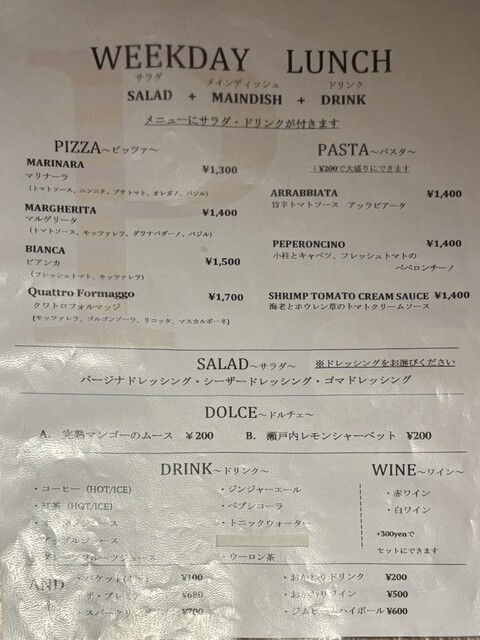 WEEKDAY LUNCH
サラダ メインディッシュ ドリンク
SALAD + MAINDISH + DRINK
メニューにサラダ・ドリンクが付きます
PIZZA～ピッツァ～
MARINARA ¥1,300
マリナーラ
(トマトソース、ニンニク、プチトマト、オレガノ、バジル)
MARGHERITA ¥1,400
マルゲリータ
(トマトソース、モッツァレラ、グラナパダーノ、バジル)
BIANCA ¥1,500
ビアンカ
(フレッシュトマト、モッツァレラ)
Quattro Formaggo ¥1,700
クワトロフォルマッジ
(モッツァレラ、ゴルゴンゾーラ、リコッタ、マスカルポーネ)
PASTA～パスタ～
+¥200で大盛りにできます
ARRABBIATA ¥1,400
旨辛トマトソース アッラビアータ
PEPERONCINO ¥1,400
小柱とキャベツ、フレッシュトマトの
ペペロンチーノ
SHRIMP TOMATO CREAM SAUCE ¥1,400
海老とホウレン草のトマトクリームソース
SALAD～サラダ～ ※ドレッシングをお選びください
バージナドレッシング・シーザードレッシング・ゴマドレッシング
DOLCE～ドルチェ～
A. 完熟マンゴーのムース ¥200 B. 瀬戸内レモンシャーベット ¥200
DRINK～ドリンク～
・コーヒー (HOT/ICE)
・紅茶 (HOT/ICE)
ジュース
アップルジュース
フルーツジュース
・ジンジャーエール
・ペプシコーラ
・トニックウォーター
・ウーロン茶
WINE～ワイン～
・赤ワイン
・白ワイン
+300yenで
セットにできます
AND
・バケット ¥100
ザ・プレミ ¥680
・スパークリ ¥700
・おかわりドリンク ¥200
・おかわりワイン ¥500
・ジムビームハイボール ¥600